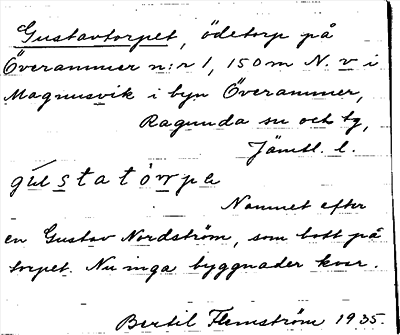 Gustavtorpet, ödetorp på
Överammer n:r 1, 150 m N. v i
Magnusvik i byn Överammer,
Ragunda sn och tg,
Jämtl. l.
Namnet efter
en Gustav Nordström, som bott på
torpet. Nu inga byggnader kvar.
Bertil Flemström 1935.